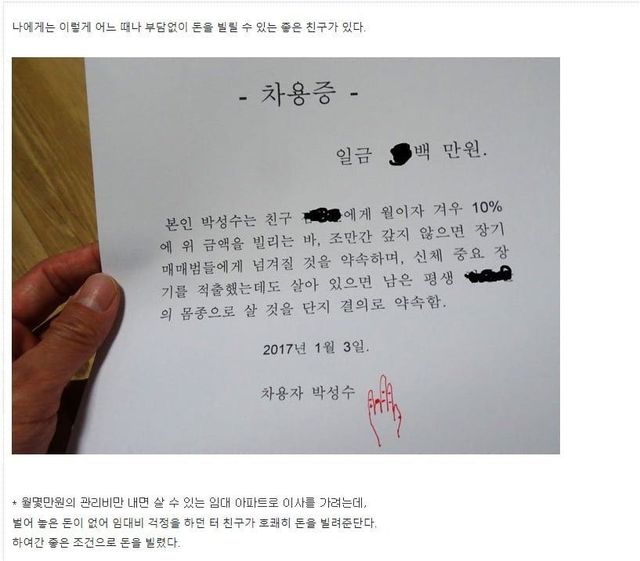 나에게는 이렇게 어느 때나 부담없이 돈을 빌릴 수 있는 좋은 친구가 있다.
- 차용증 -
일금 백 만원.
본인 박성수는 친구 에게 월이자 겨우 10%
에 위 금액을 빌리는 바, 조만간 갚지 않으면 장기
매매범들에게 넘겨질 것을 약속하며, 신체 중요 장
기를 적출했는데도 살아 있으면 남은 평생
의 몸종으로 살 것을 단지 결의로 약속함.
2017년 1월 3일.
차용자 박성수
* 월몇만원의 관리비만 내면 살 수 있는 임대 아파트로 이사를 가려는데,
벌어 놓은 돈이 없어 임대비 걱정을 하던 터 친구가 호쾌히 돈을 빌려준단다.
하여간 좋은 조건으로 돈을 빌렸다.